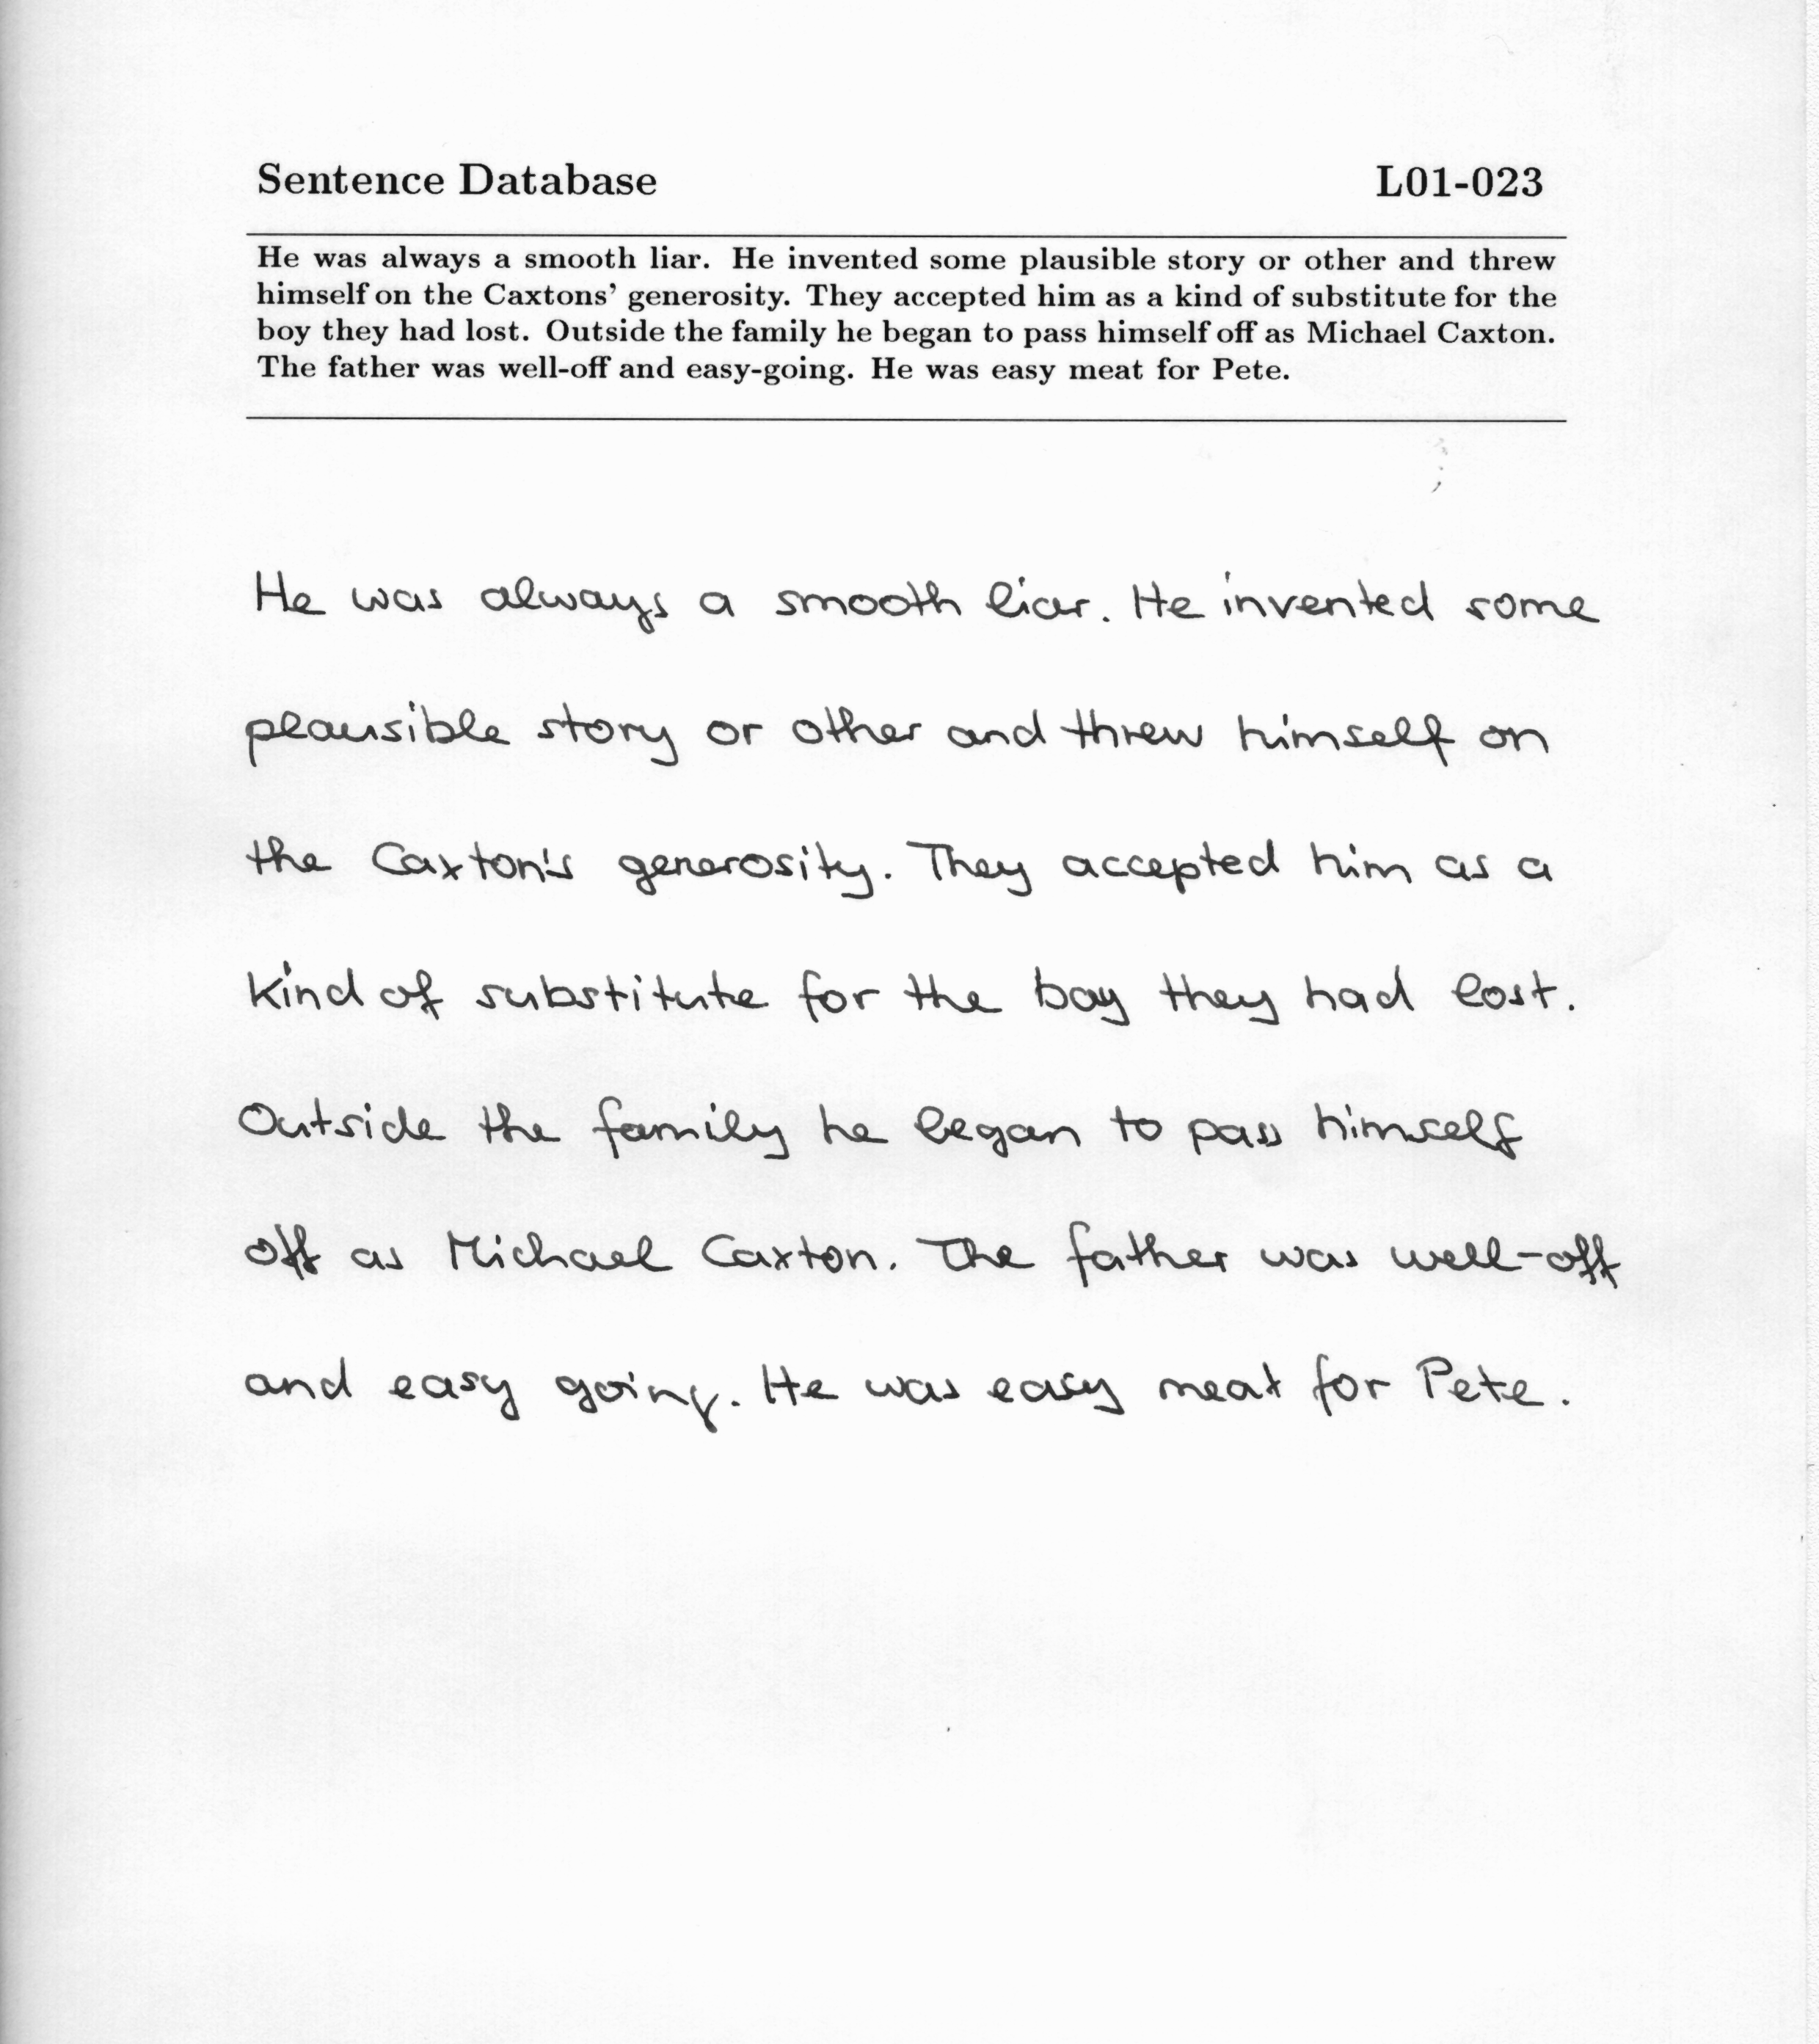 Sentence Database L01-023
He was always a smooth liar. He invented some plausible story or other and threw
himself on the Caxtons' generosity. They accepted him as a kind of substitute for the
boy they had lost. Outside the family he began to pass himself off as Michael Caxton.
The father was well-off and easy-going. He was easy meat for Pete.
He was always a smooth liar. He invented some
plausible story or other and threw himself on
the Caxton's generosity. They accepted him as a
kind of substitute for the boy they had lost.
Outside the family he began to pass himself
off as Michael Caxton. The father was well-off
and easy going. He was easy meat for Pete.